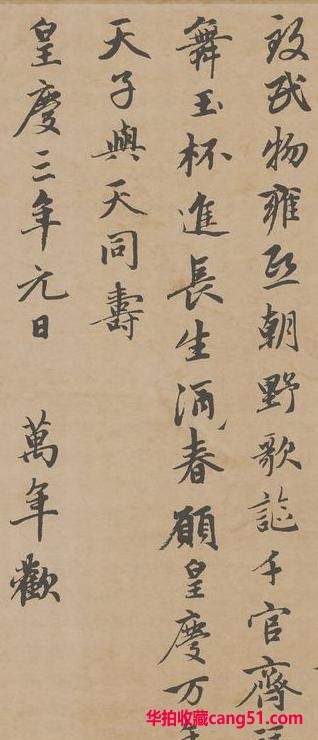 致民物雍熙朝野歌謳千官齊
舞玉杯進長生酒春願皇慶万年
天子與天同壽
皇慶三年元日 萬年歡
华拍收藏cang51.com